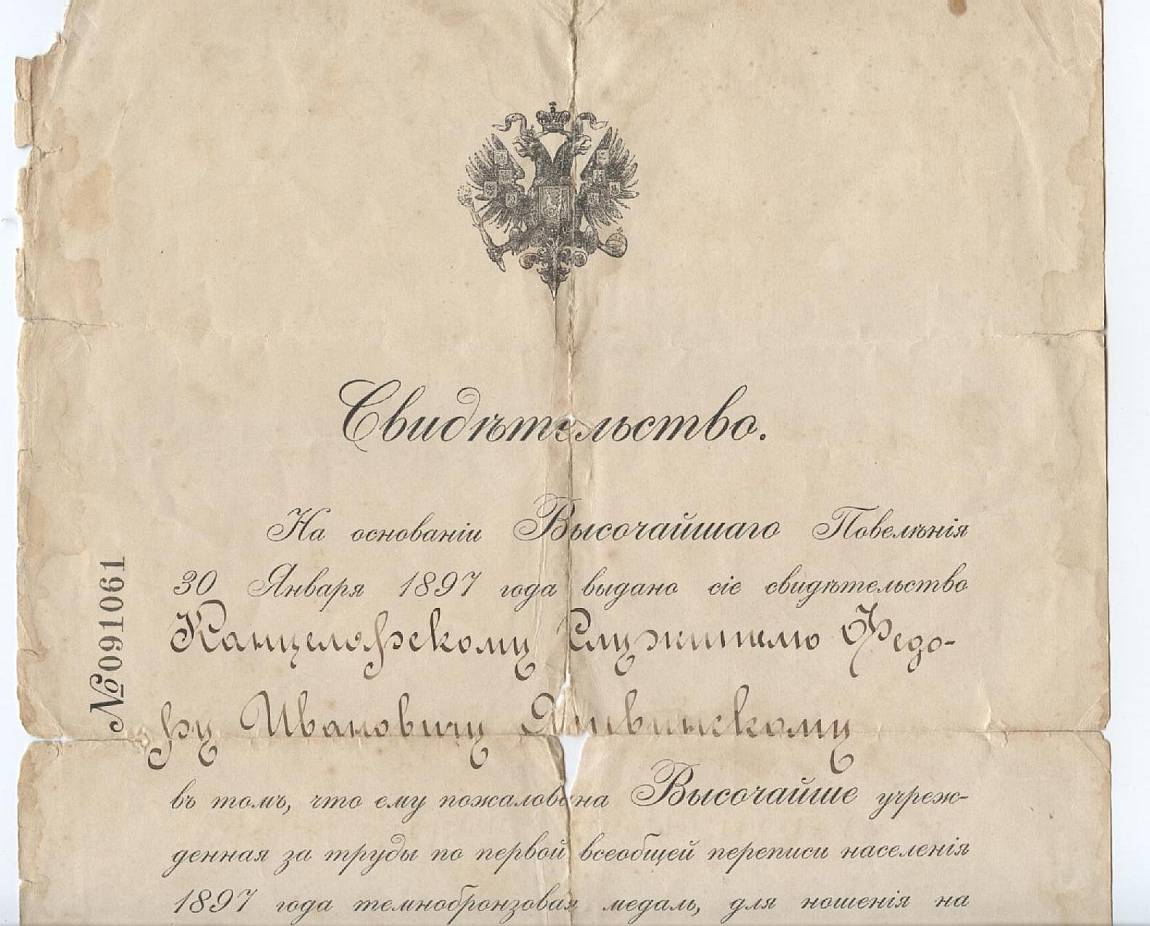 Свидѣтельство.
На основаніи Высочайшаго Повелѣнія
30 Января 1897 года выдано сіе свидѣтельство
№ 091061
Канцелярскому Служителю Ѳедо-
ру Ивановичу
въ томъ, что ему пожалована Высочайше учреж-
денная за труды по первой всеобщей переписи населенія
1897 года темнобронзовая медаль, для ношенія на